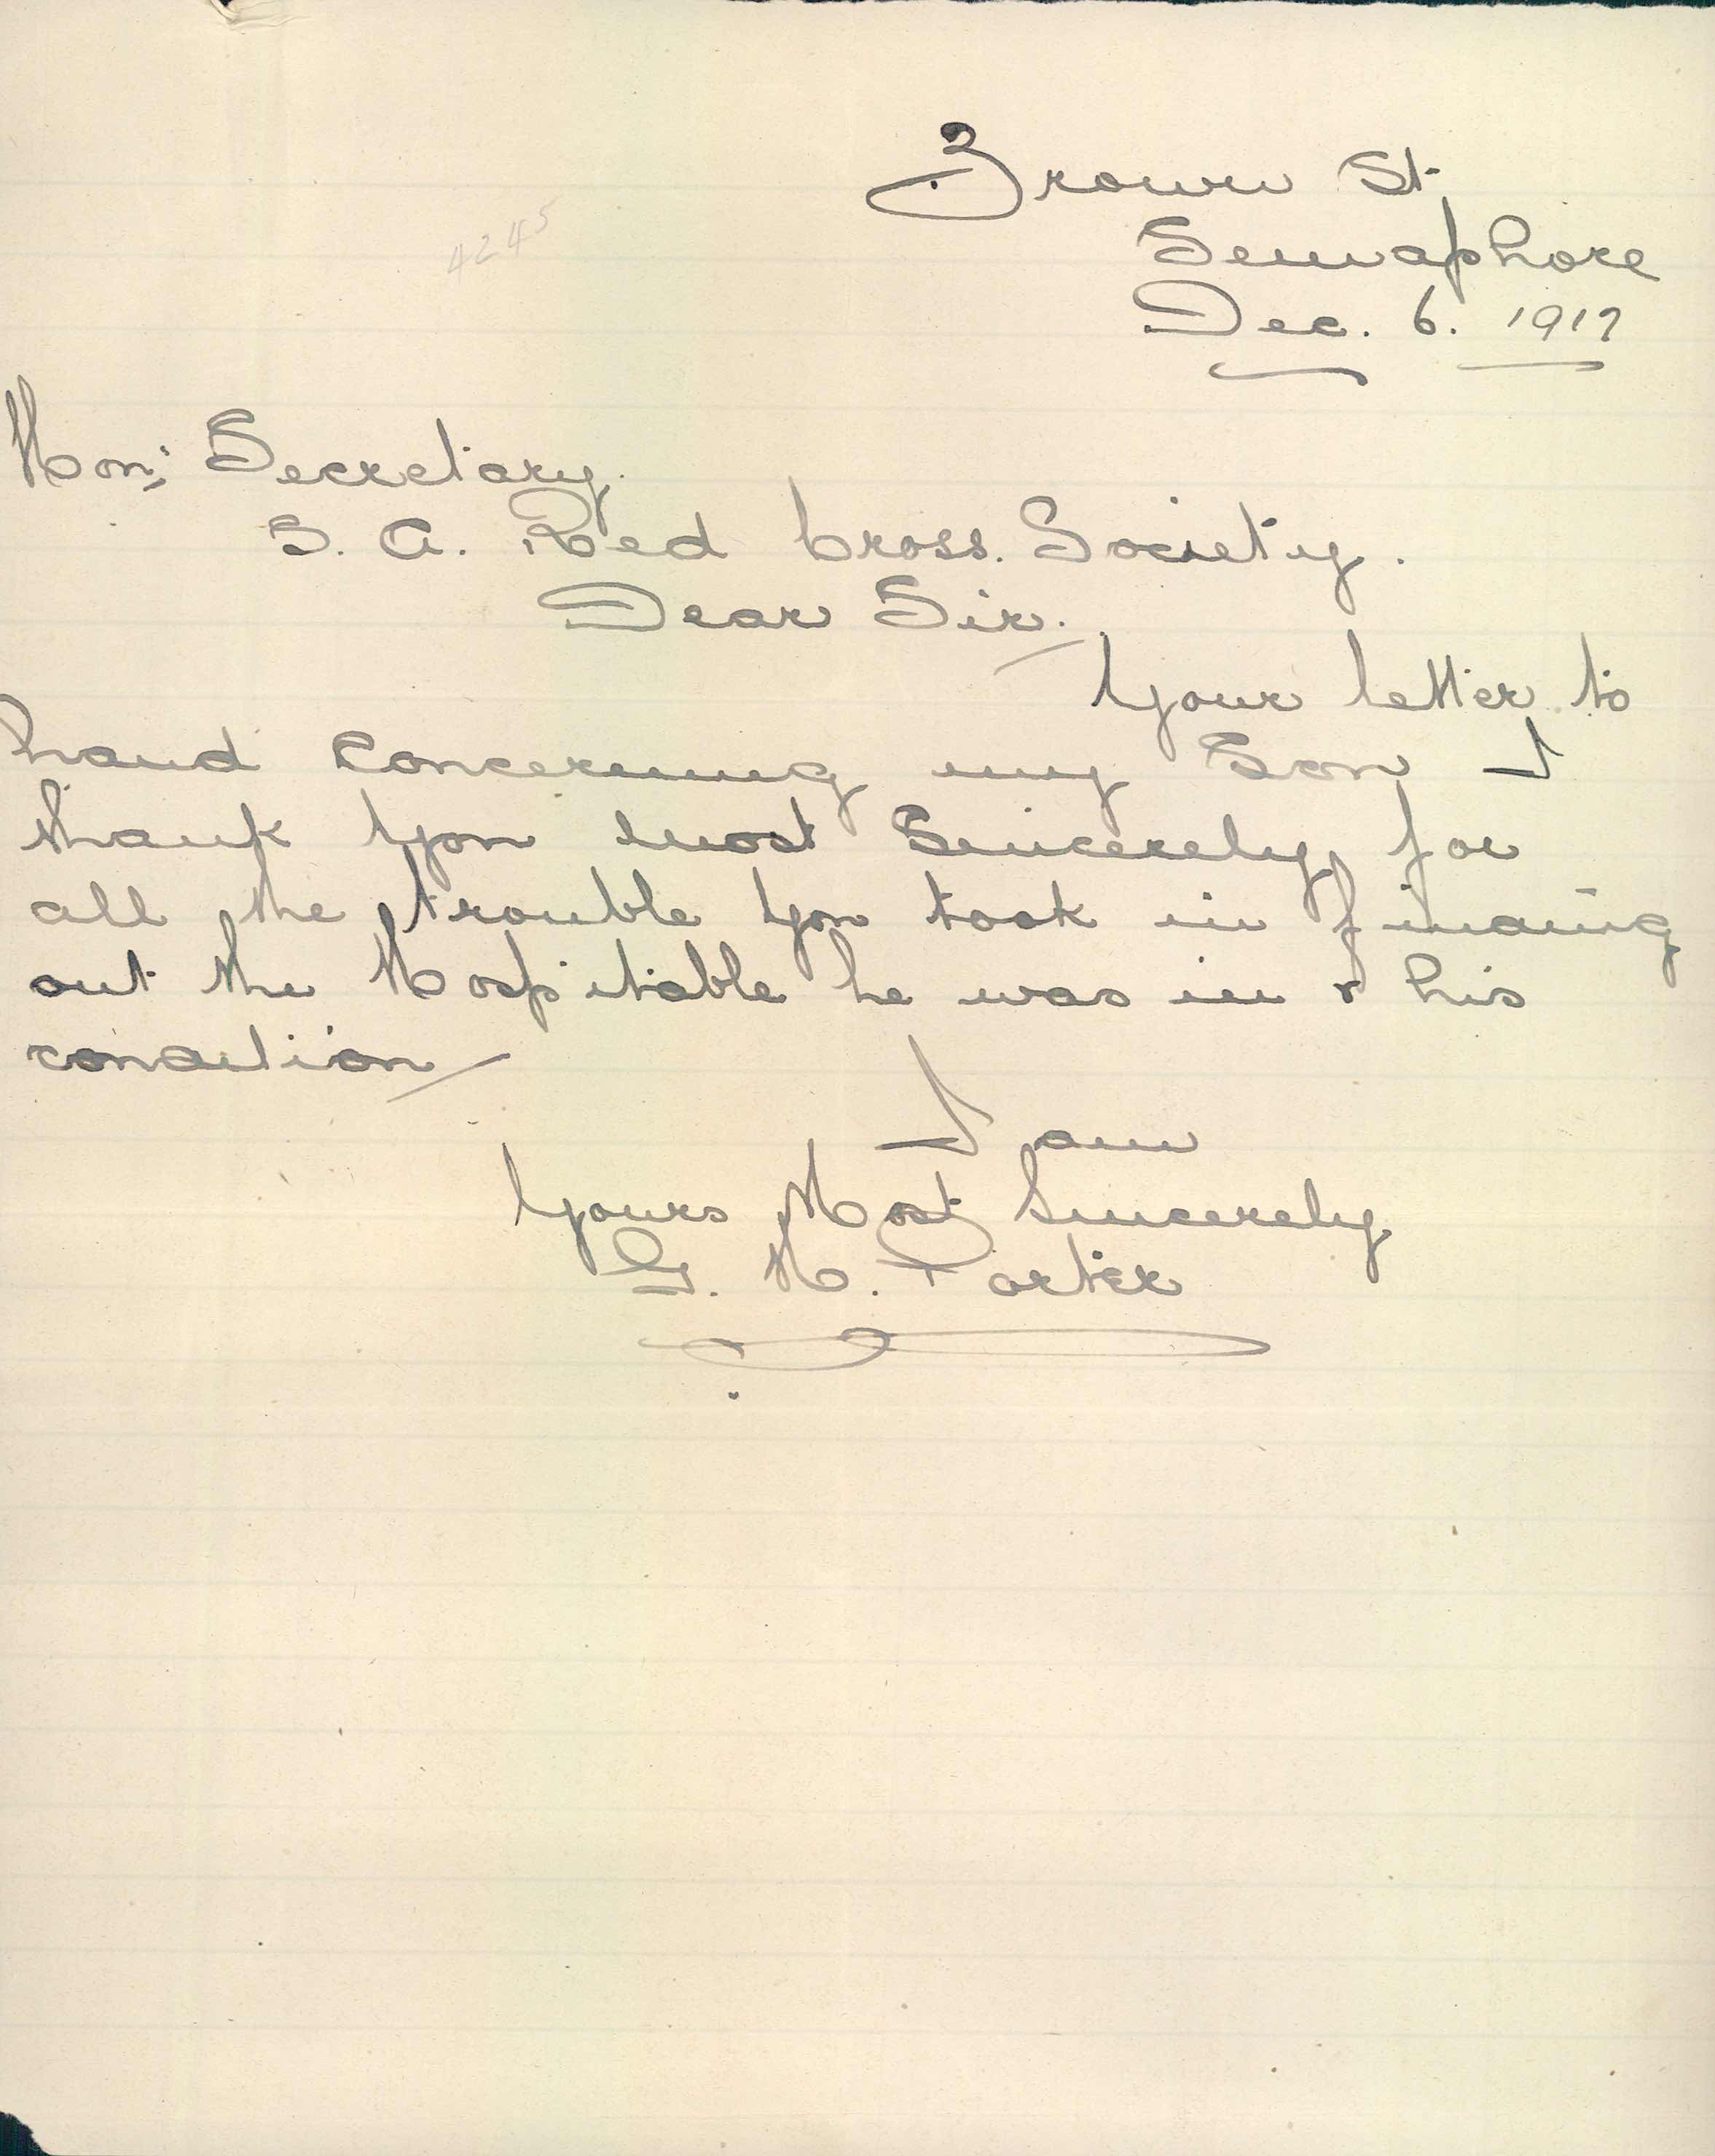 Brown St.
Semaphore
4245
Dec. 6. 1917
Hon; Secretary.
S. A. Red Cross. Society.
Dear Sir.
Your letter to
hand Concerning my Son I
thank you most Sincerely for
all the trouble you took in finding
out the Hospitable he was in & his
condition
I am
Yours Most Sincerely
H. Porter